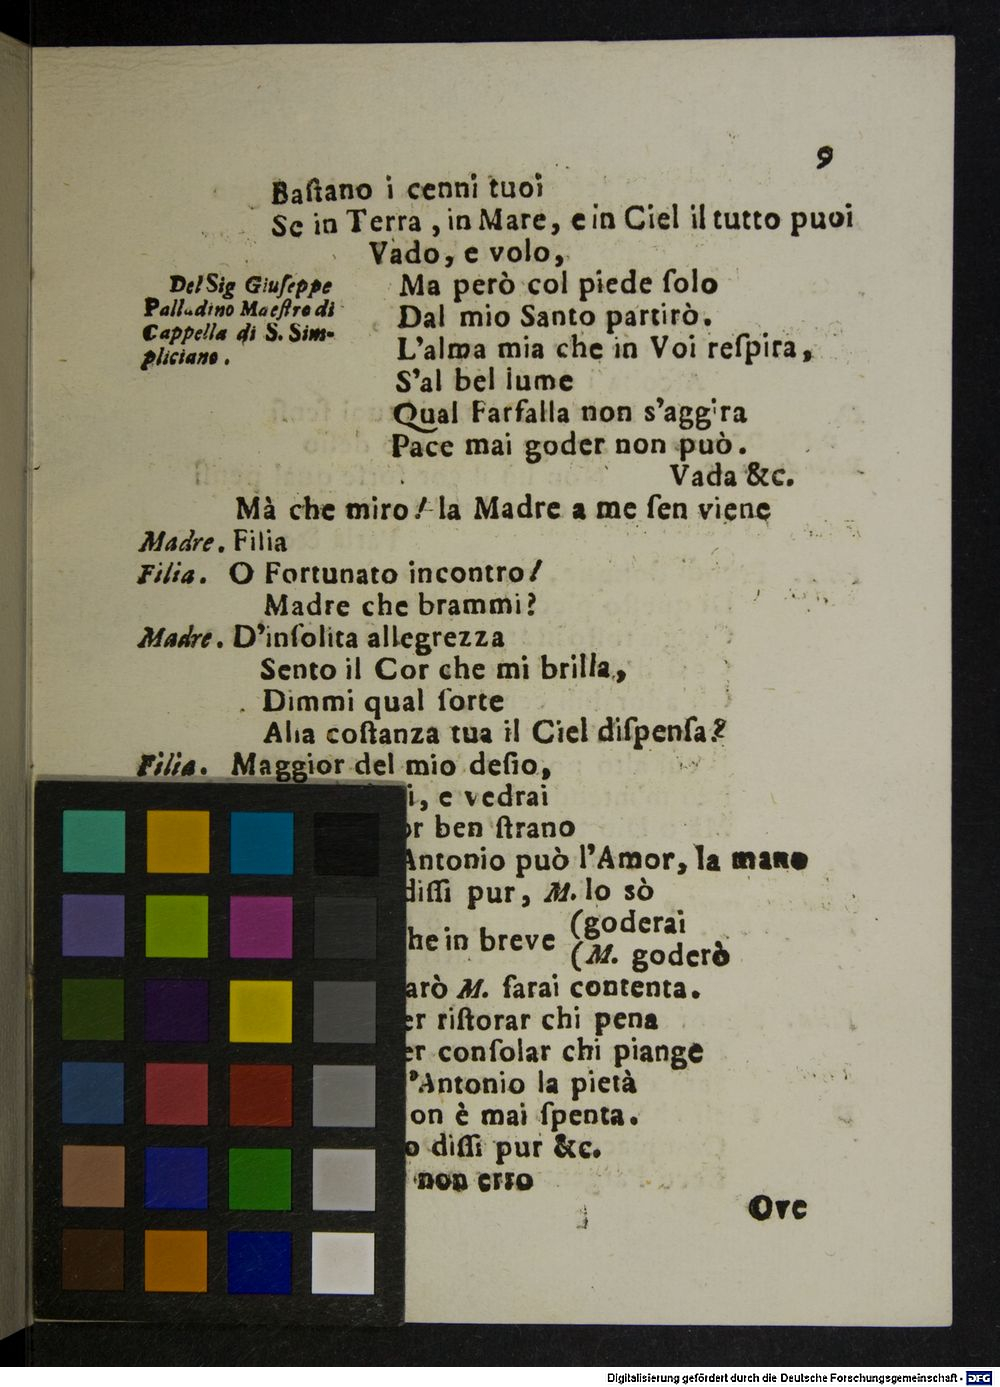 9
Baſtano i cenni tuoi
Se in Terra, in Mare, e in Ciel il tutto puoi
Vado, e volo,
Del Sig Giuſeppe
Palladino Maeſtro di
Cappella di S. Sim-
pliciano.
Ma però col piede ſolo
Dal mio Santo partirò.
L'alma mia che in Voi reſpira,
S'al bel lume
Qual Farfalla non s'aggira
Pace mai goder non può.
Vada &c.
Mà che miro! la Madre a me ſen viene
Madre. Filia
Filia. O Fortunato incontro!
Madre che brammi?
Madre. D'inſolita allegrezza
Sento il Cor che mi brilla,
Dimmi qual ſorte
Alla coſtanza tua il Ciel diſpenſa?
Filia. Maggior del mio deſio,
i, e vedrai
or ben ſtrano
Antonio può l'Amor, la mano
diſſi pur, M. lo sò
he in breve (goderai
(M. goderò
arò M. ſarai contenta.
er riſtorar chi pena
er conſolar chi piange
'Antonio la pietà
on è mai ſpenta.
o diſſi pur &c.
non erro
Ove
Digitalisierung gefördert durch die Deutsche Forschungsgemeinschaft - DFG